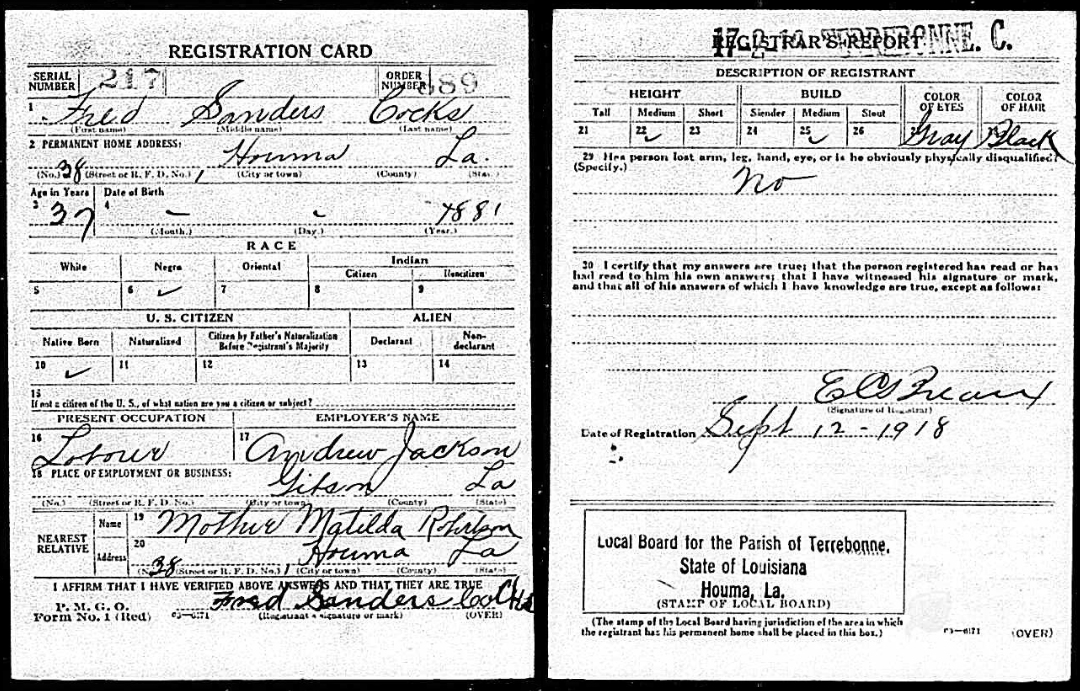 REGISTRATION CARD
SERIAL NUMBER 217 ORDER NUMBER 889
1 Fred Sanders Cocks
(First name) (Middle name) (Last name)
2 PERMANENT HOME ADDRESS:
38 Houma La.
(No.) (Street or R. F. D. No.) (City or town) (County) (State)
Age in Years Date of Birth
3 37 4 - - 1881
(Month.) (Day.) (Year.)
RACE
White Negro Oriental Indian
Citizen Noncitizen
5 6 ✓ 7 8 9
U. S. CITIZEN ALIEN
Native Born Naturalized Citizen by Father's Naturalization Before Registrant's Majority Declarant Non-declarant
10 ✓ 11 12 13 14
15
If not a citizen of the U. S., of what nation are you a citizen or subject?
PRESENT OCCUPATION EMPLOYER'S NAME
16 Laborer 17 Andrew Jackson
18 PLACE OF EMPLOYMENT OR BUSINESS:
Gibson La
(No.) (Street or R. F. D. No.) (City or town) (County) (State)
NEAREST RELATIVE Name 19 Mother Matilda Robertson
Address 20 38 Houma La
(No.) (Street or R. F. D. No.) (City or town) (County) (State)
I AFFIRM THAT I HAVE VERIFIED ABOVE ANSWERS AND THAT THEY ARE TRUE
P. M. G. O.
Form No. 1 (Red) 03-6171 Fred Sanders Cocks
(Registrant's signature or mark) (OVER)
REGISTRAR'S REPORT
17 TERREBONNE. C.
DESCRIPTION OF REGISTRANT
HEIGHT BUILD COLOR OF EYES COLOR OF HAIR
Tall Medium Short Slender Medium Stout
21 22 ✓ 23 24 25 ✓ 26 Gray Black
29 Has person lost arm, leg, hand, eye, or is he obviously physically disqualified?
(Specify.)
No
30 I certify that my answers are true; that the person registered has read or has
had read to him his own answers; that I have witnessed his signature or mark,
and that all of his answers of which I have knowledge are true, except as follows:
(Signature of Registrar)
Date of Registration Sept 12-1918
Local Board for the Parish of Terrebonne.
State of Louisiana
Houma, La.
(STAMP OF LOCAL BOARD)
(The stamp of the Local Board having jurisdiction of the area in which
the registrant has his permanent home shall be placed in this box.)
03-6171 (OVER)